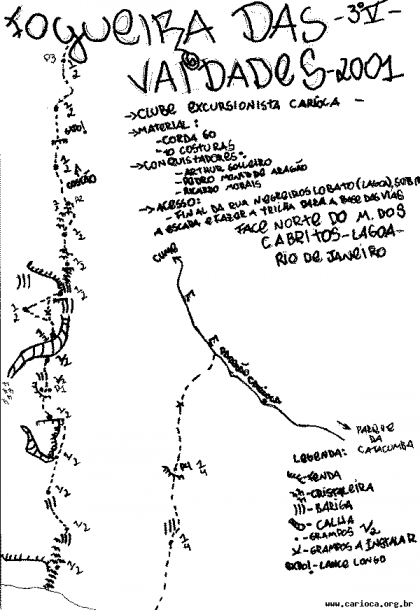 FOGUEIRA DAS - 3ºV -
VAIDADES - 2001
→ CLUBE EXCURSIONISTA CARIOCA -
→ MATERIAL:
- CORDA 60
- 10 COSTURAS
→ CONQUISTADORES:
- ARTHUR
- PEDRO MONTE DE ARAGÃO
- RICARDO MORAIS
→ ACESSO:
- FINAL DA RUA NEGREIROS LOBATO (LAGOA),
A ESCADA E FAZER A TRILHA PARA A BASE DAS VIAS
FACE NORTE DO M. DOS
CABRITOS - LAGOA -
RIO DE JANEIRO
P3
1/2
P2
1/2
1/2
P1
1/2
1/2
1/2
1/2
CUME
P4 1/4
1/4
PARQUE
DA
CATACUMBA
LEGENDA:
- FENDA
- CRISTALEIRA
- BARIGA
- CALHA
- GRAMPOS 1/2
- GRAMPOS A INSTALAR
- LANCE LONGO
www.carioca.org.br